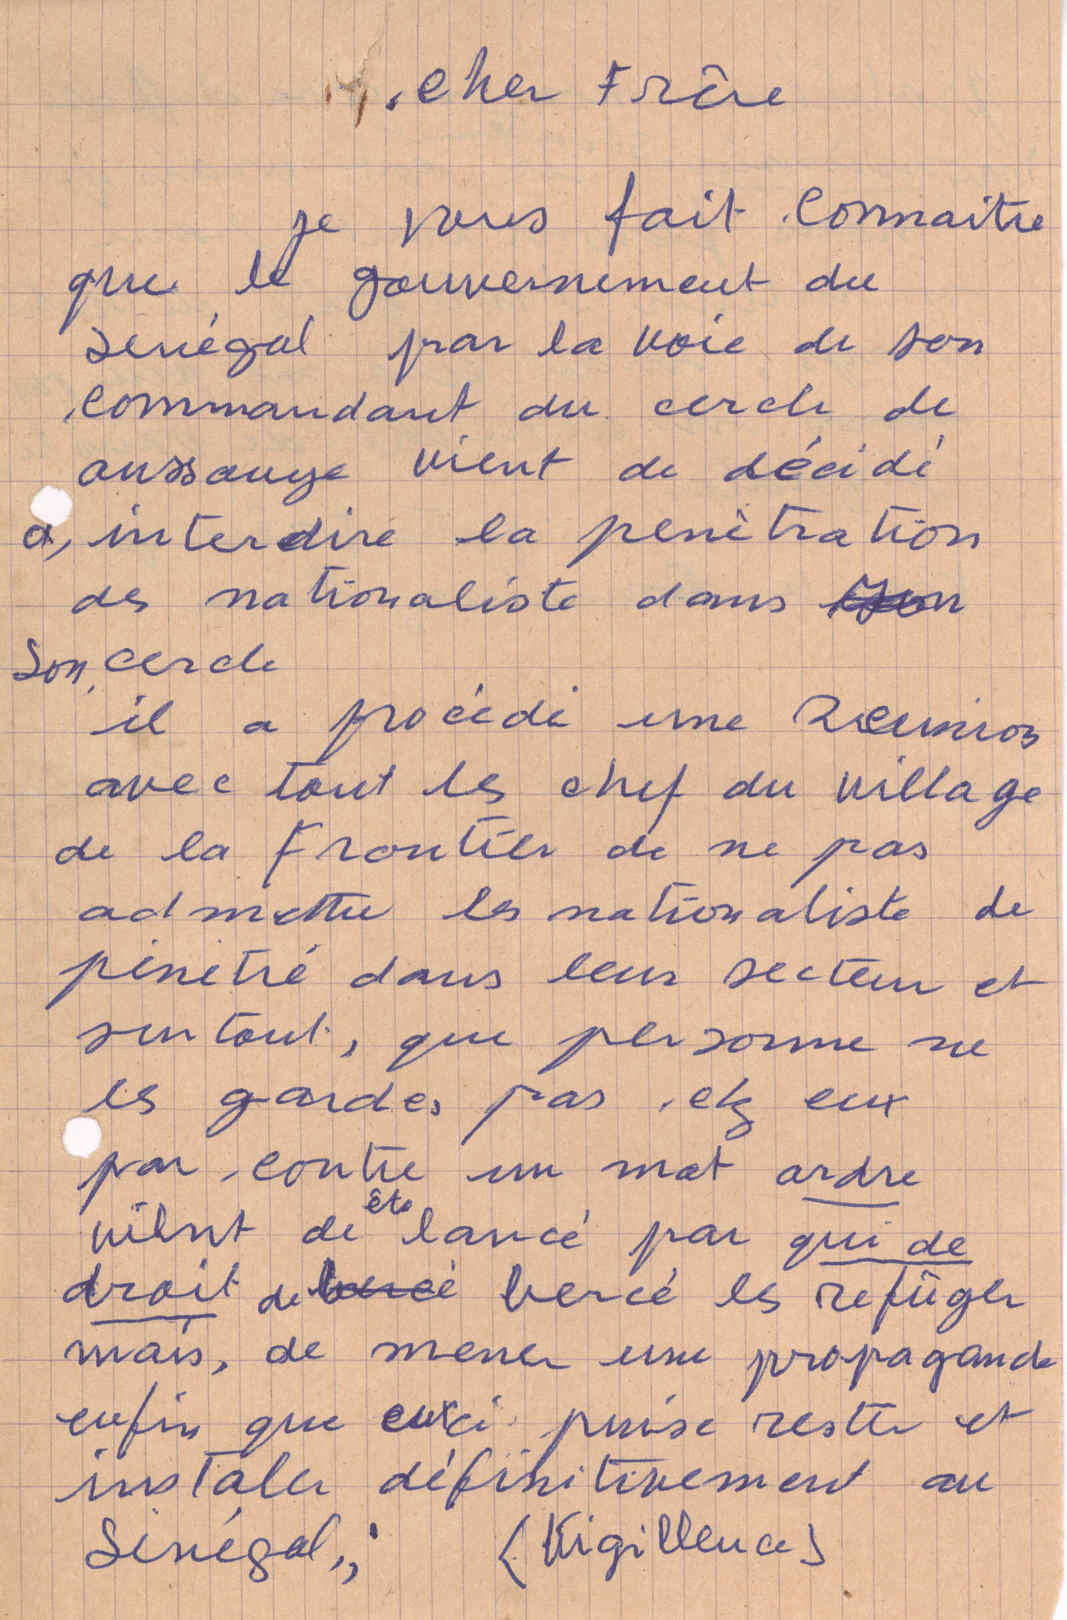 cher Frère
je vous fait connaitre
que le gouvernement du
senégal par la voie de son
commandant du cercle de
oussouye vient de décidé
a, interdire la penètration
des nationaliste dans
Son cercle
il a procédé une Reunion
avec tout les chef du village
de la Frontièr de ne pas
admettre les nationaliste de
pénétré dans leur secteur et
surtout, que personne ne
les gardes pas chz eux
par contre un mot ordre
vient de êtê lancé par qui de
droit de bercé bercé les refüger
mais, de mener une propagande
enfin que ceuxci puise reste et
instaler définitivement au
Sénégal,,' (Vigillence)